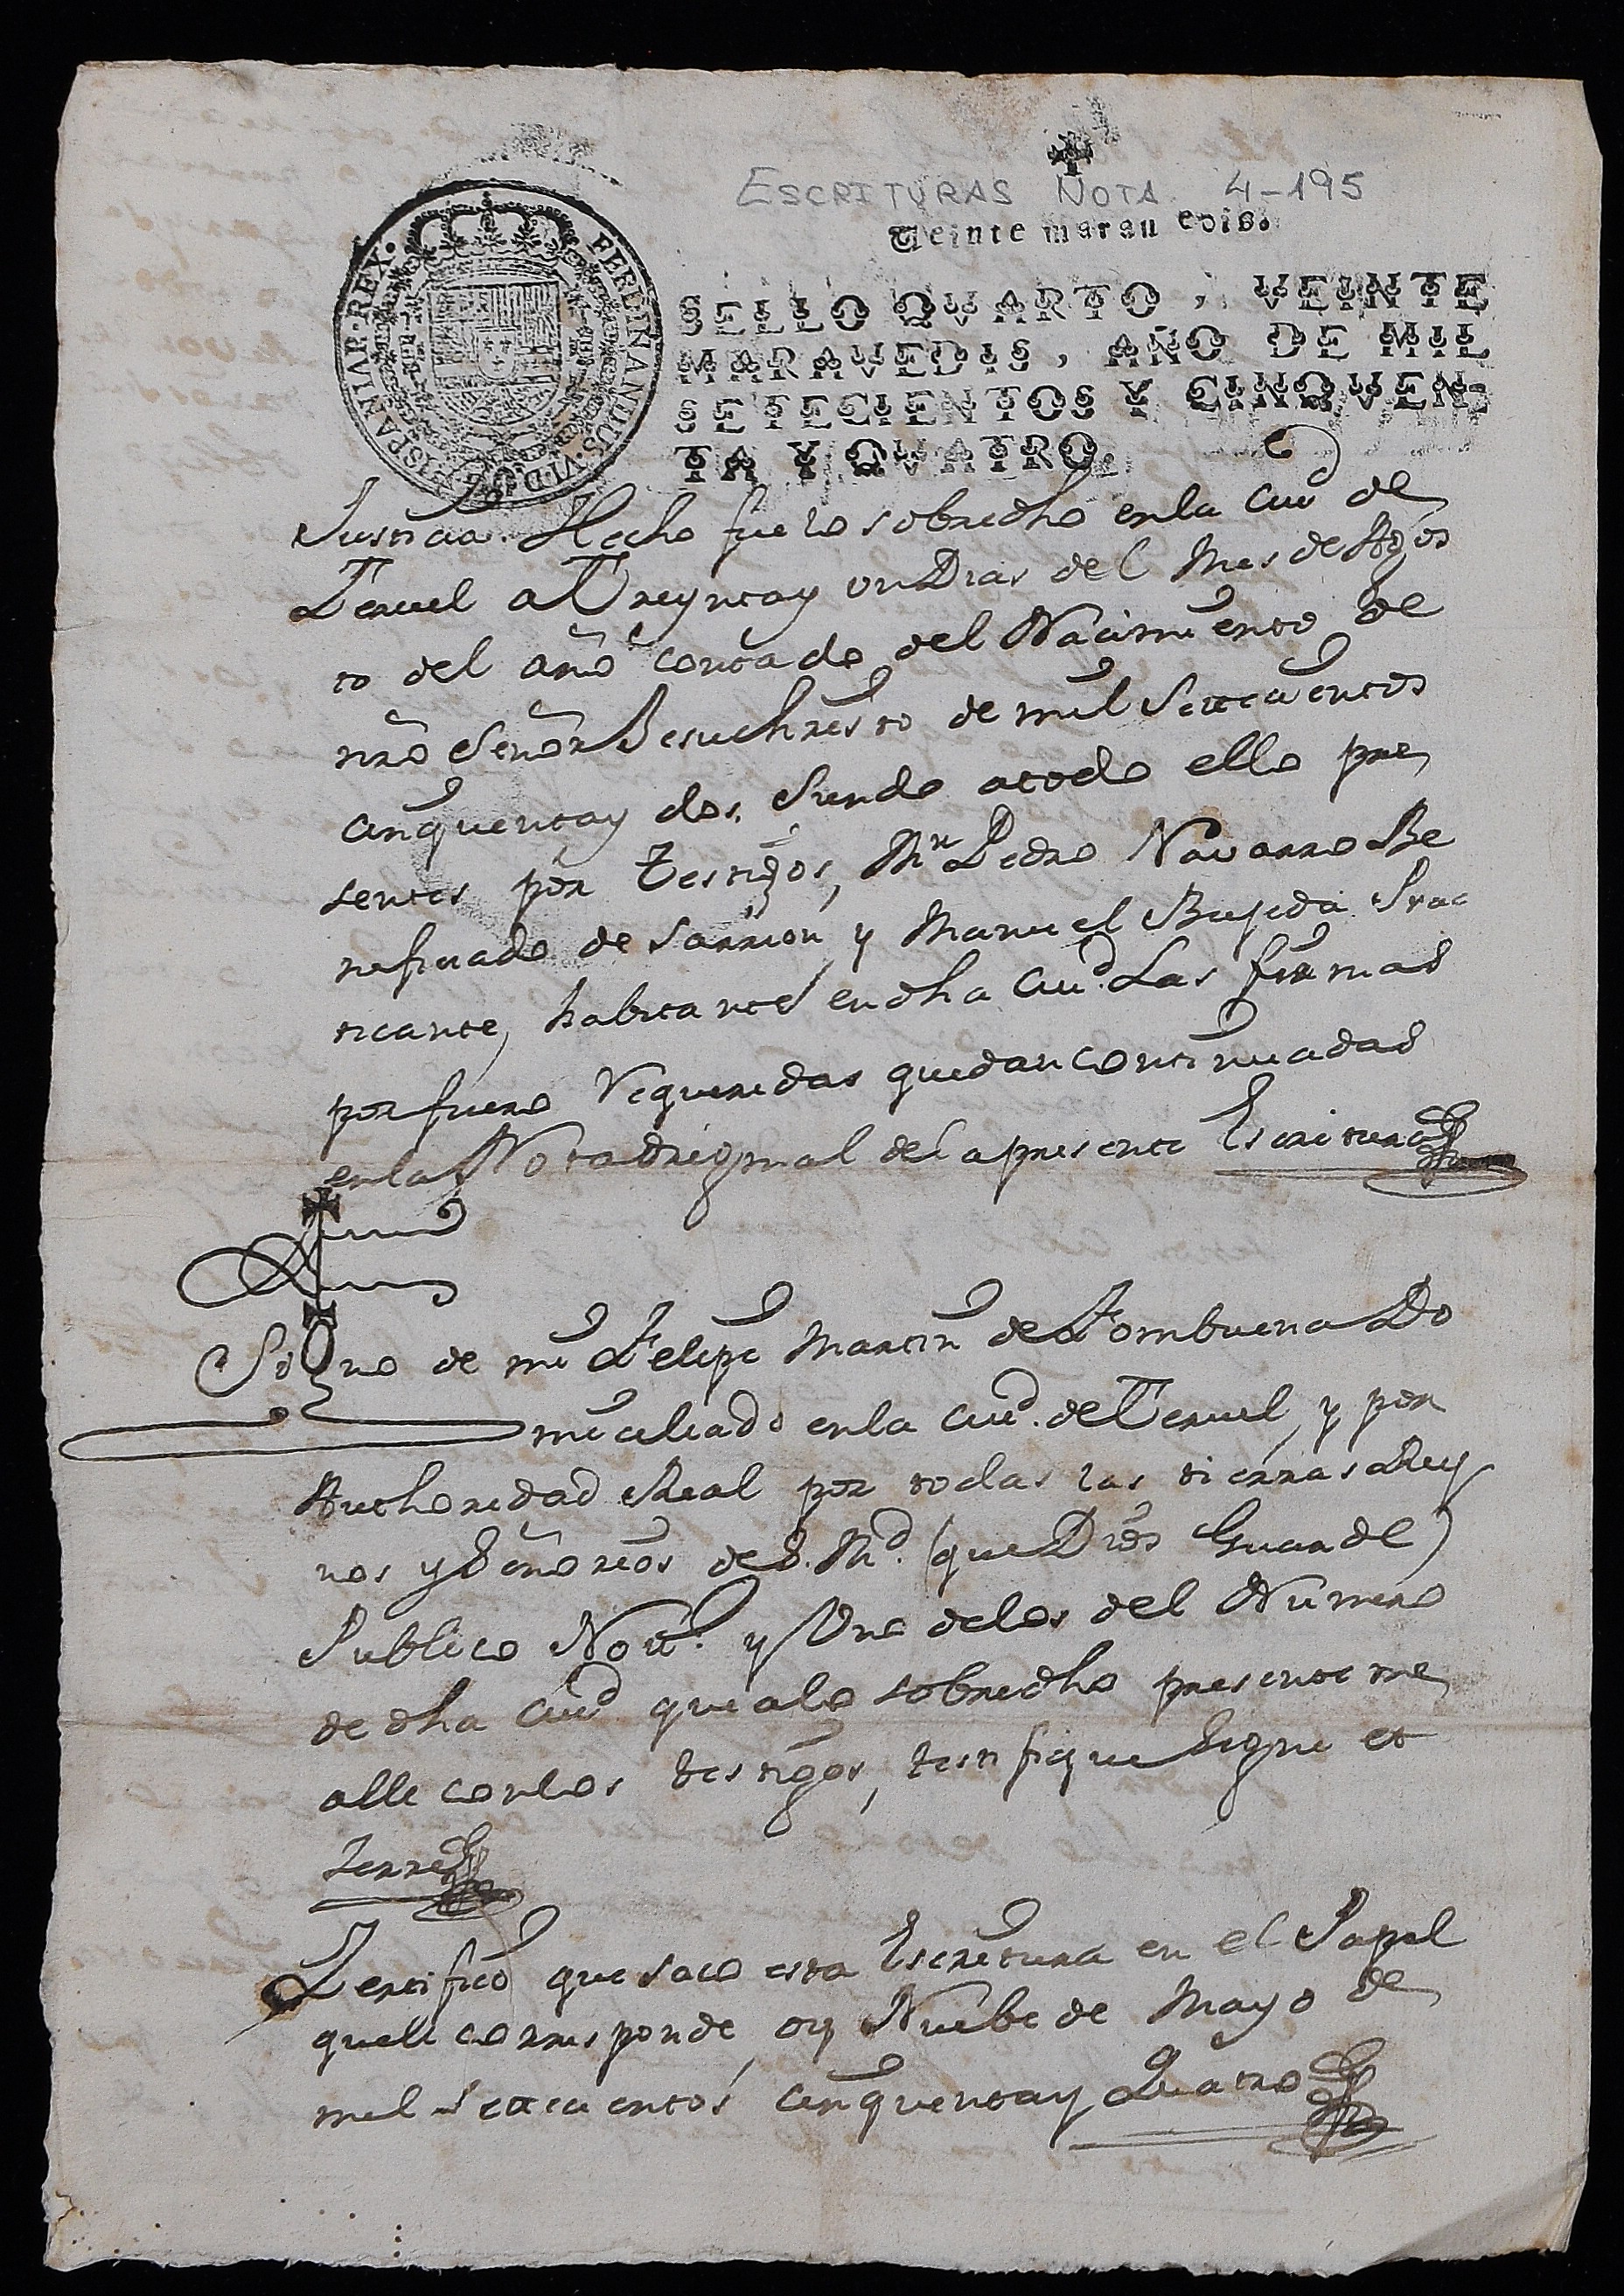 ESCRITURAS NOTA 4-195
Veinte marauedis.
FERDINANDUS·VI·D·G·HISPANIAR·REX·
SELLO QVARTO, VEINTE
MARAVEDIS, AÑO DE MIL
SETECIENTOS Y CINQVEN-
TA Y QVATRO.
Justicia. Hecho fue lo sobredho en la Ciud de
Teruel a Treynta y un Dias del Mes de Agos
to del año contado del Nacimiento de
nro Señor Jesuchristo de mil Setecientos
cinquenta y dos, siendo a todo ello pre
sentes por testigos, Mn Pedro Navarro Be
neficiado de Sarrion y Manuel Bujeda Prac
ticante, habitantes en dha Ciud. Las firmas
por fuero requeridas quedan continuadas
en la Nota original de la presente Escritura
Signo de mi Felipe Martin de Fombuena Do
miciliado en la Ciud. de Teruel, y por
Authoridad Real por todas las tierras Rey
nos y Señorios de S. Md. (que Dios Guarde)
Publico Nott. y Uno de los del Numero
de dha Ciud que a lo sobredho presente me
alle con los testigos, testifique signe et
Zerre
Zertifico que saco esta Escritura en el Papel
que le corresponde oy Nuebe de Mayo de
mil Setecientos cinquenta y Quatro